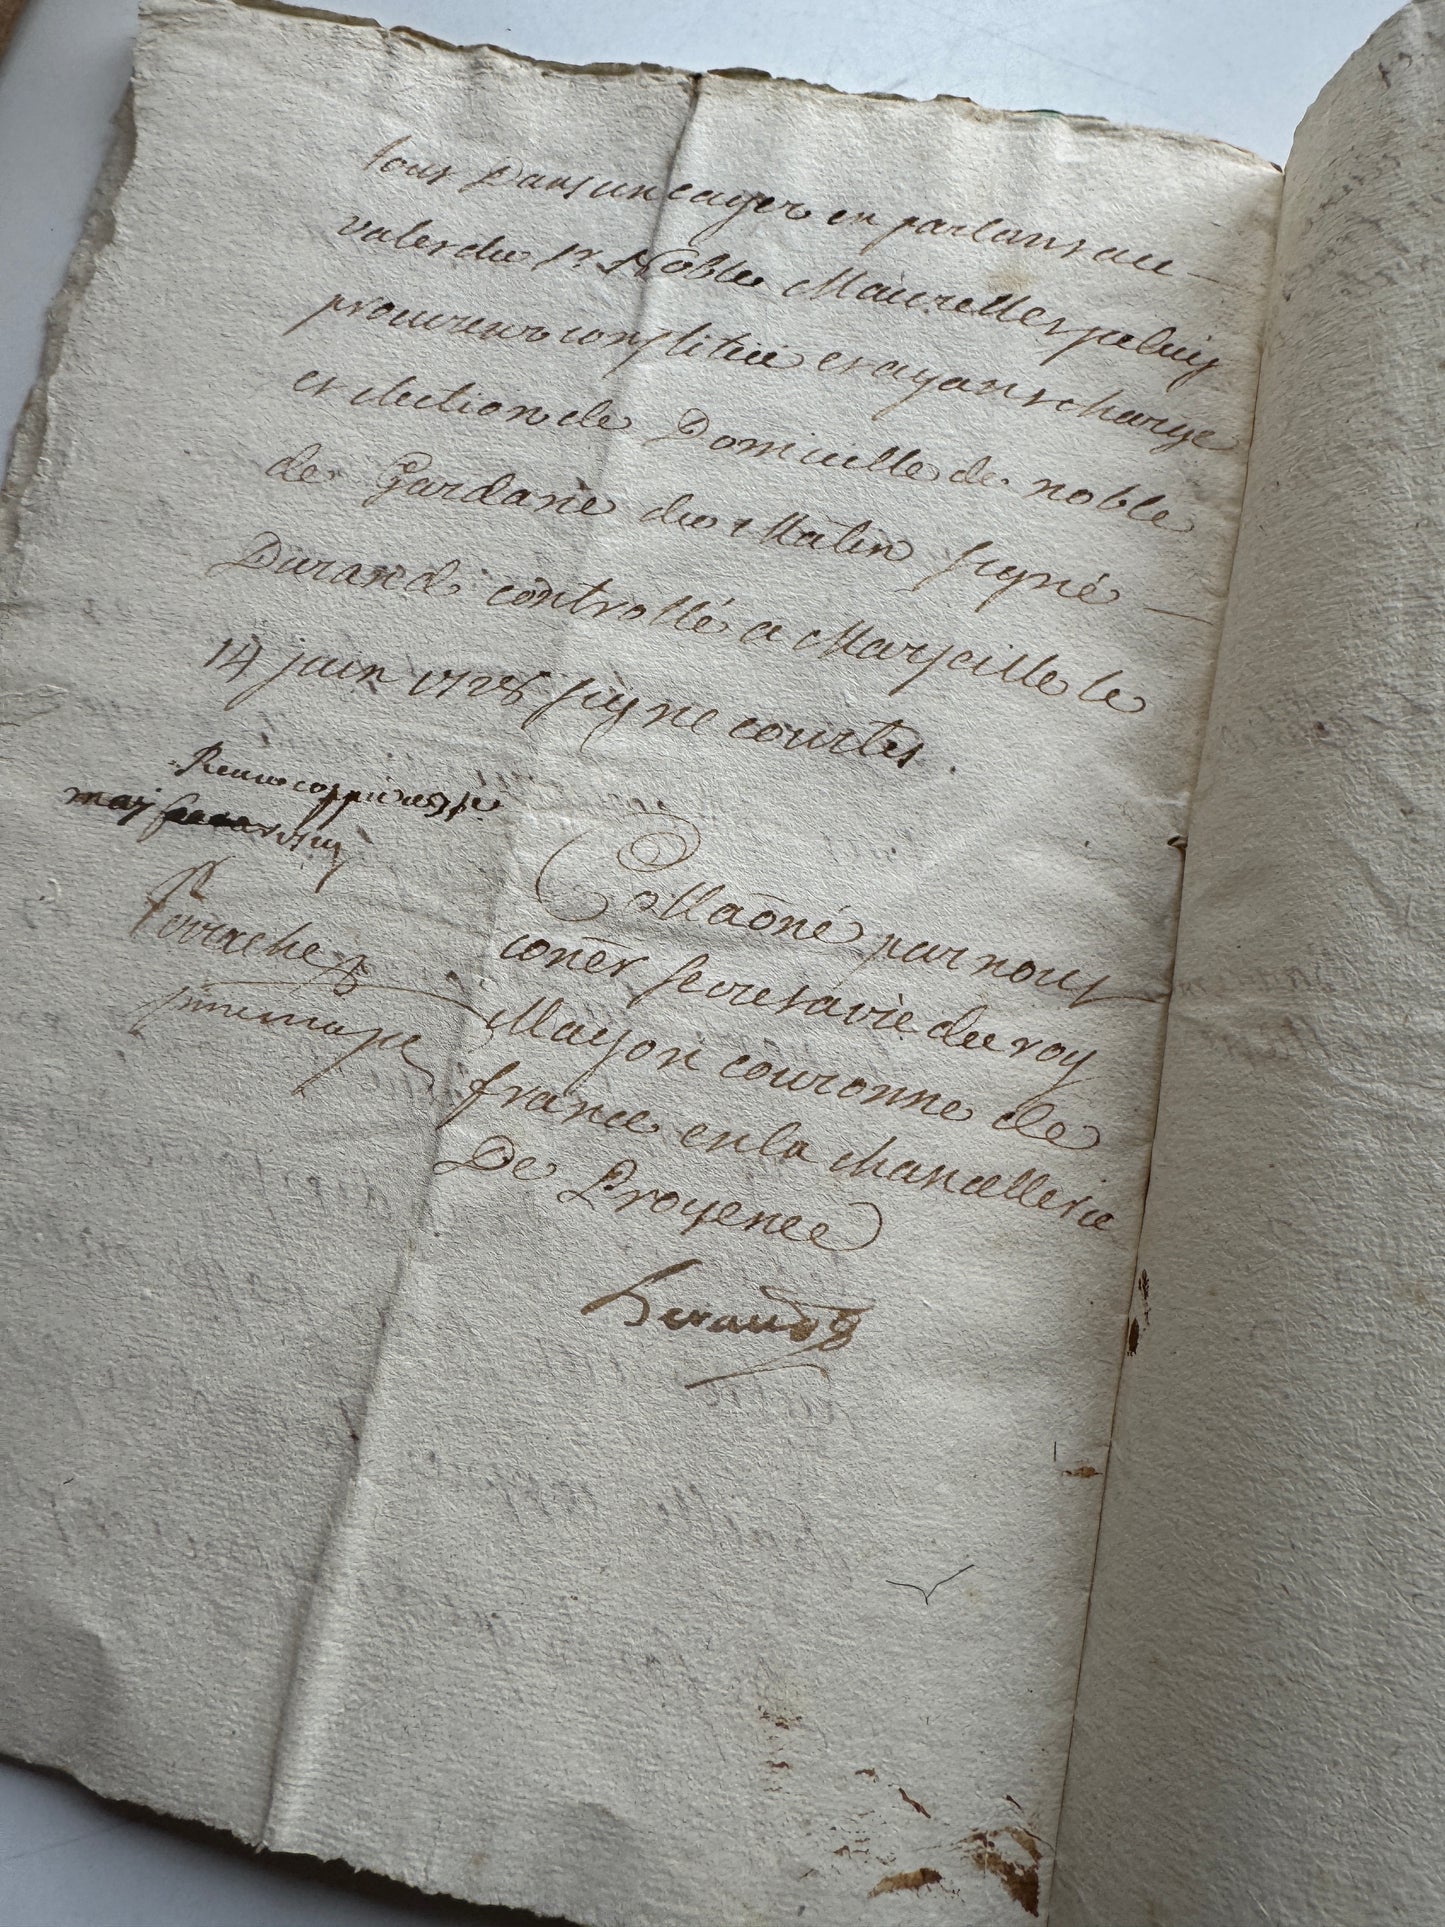 tout dans un cayer en parlant au
valet du Sr Noble Maurellet seluy
procureur constitué et ayant charge
et election de Domicille de noble
de Gardane du Matin signé
Durand controllé a Marseille le
14 juin 1728 signe courtes.
Receu coppie le
may
Perrache
Collaōné par nous
conēr secretaire du roy
Mayson couronne de
france en la chancellerie
De Provence
Beraud